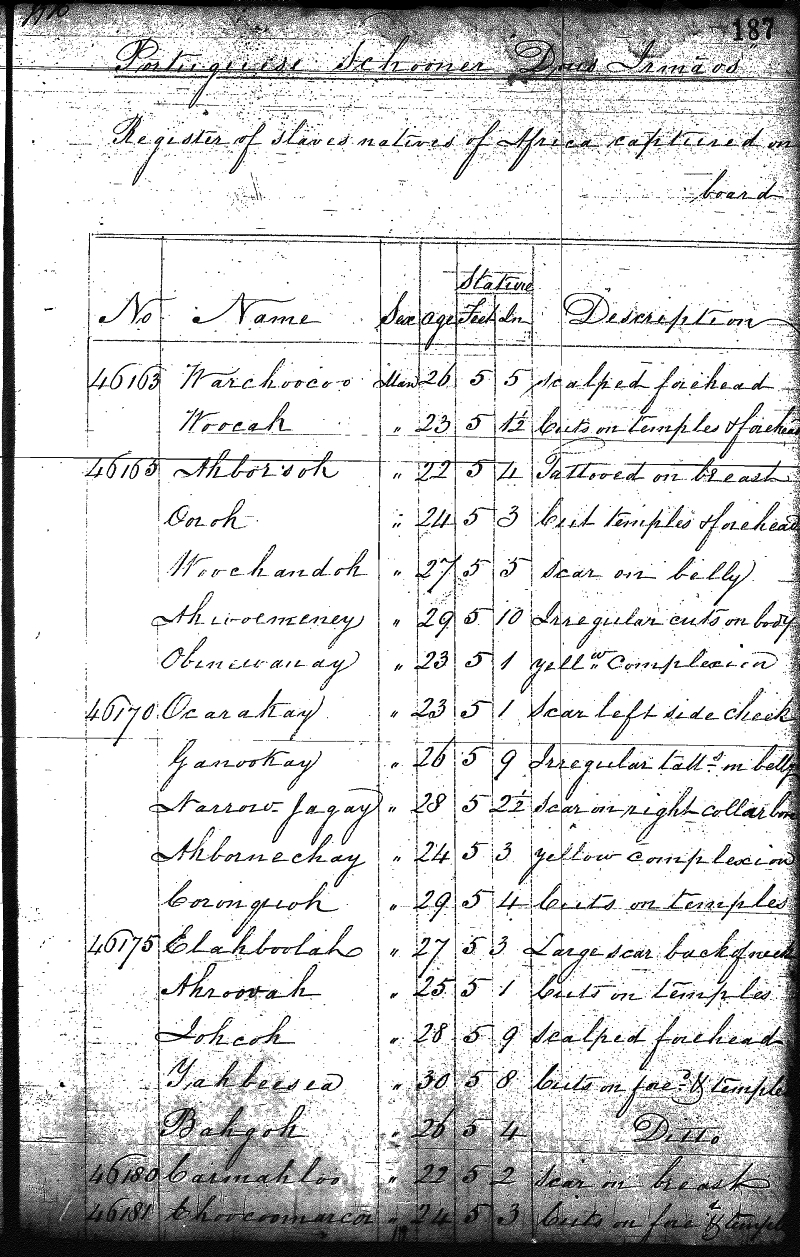 187
Portuguese Schooner "Dous Irmãos"
Register of slaves natives of Africa captured on
board
Stature
No Name Sex age Feet In Description
46163 Warchoocoo Man 26 5 5 scalped forehead
Woocah " 23 5 1½ Cuts on temples & forehead
46165 Ahborsoh " 22 5 4 Tattooed on breast
Oroh " 24 5 3 Cut temples & forehead
Woochandoh " 27 5 5 scar on belly
Ahwoemeney " 29 5 10 Irregular cuts on body
Obinewanay " 23 5 1 yellw complexion
46170 Ocarakay " 23 5 1 Scar left side cheek
Ganookay " 26 5 9 Irregular tatts on belly
Narrow-Jagay " 28 5 2½ Scar on right collar bone
Ahbornechay " 24 5 3 yellow complexion
Coronquoh " 29 5 4 Cuts on temples
46175 Elahboolah " 27 5 3 Large scar back of neck
Ahroovah " 25 5 1 Cuts on temples
Johcoh " 28 5 9 Scalped forehead
Yahbeesea " 30 5 8 Cuts on fored & temples
Bahgoh " 26 5 4 Ditto
46180 Carmahloo " 22 5 2 scar on breast
46181 Choocoomarcor " 24 5 3 Cuts on fored & temples